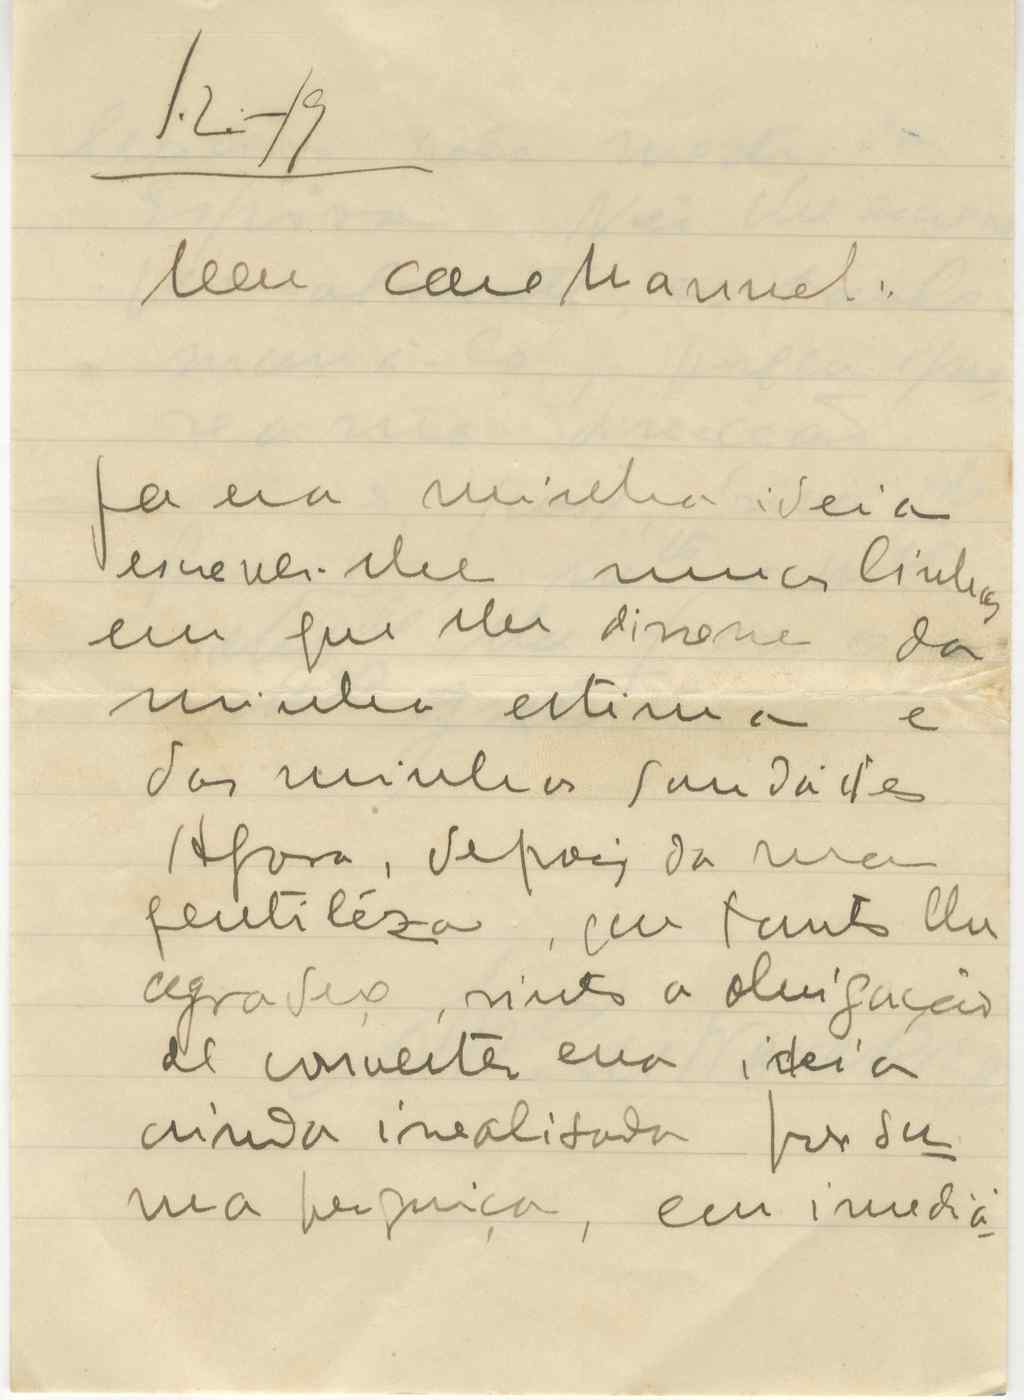 1-2-19
Meu caro Manuel:
Ja era minha ideia
escrever-lhe umas linhas
em que lhe dissesse da
minha estima e
das minhas saudádes
Agora, depois da sua
gentiléza, que tanto lhe
agradeço, sinto a obrigação
de converter essa ideia
ainda irealisada por su
ma perguiça, em imediá